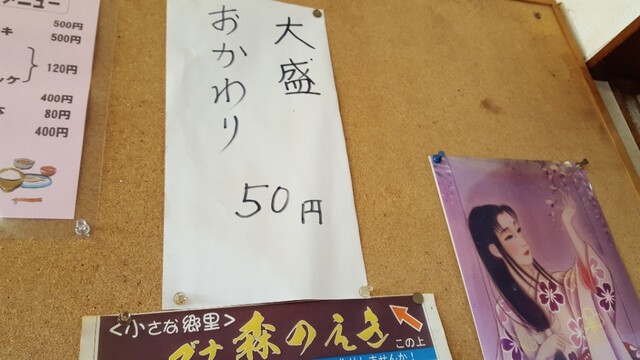 メニュー
500円
キ 500円
120円
ンケ
400円
80円
400円
大盛
おかわり
50円
<小さな郷里>
ブナ森のえき
この上